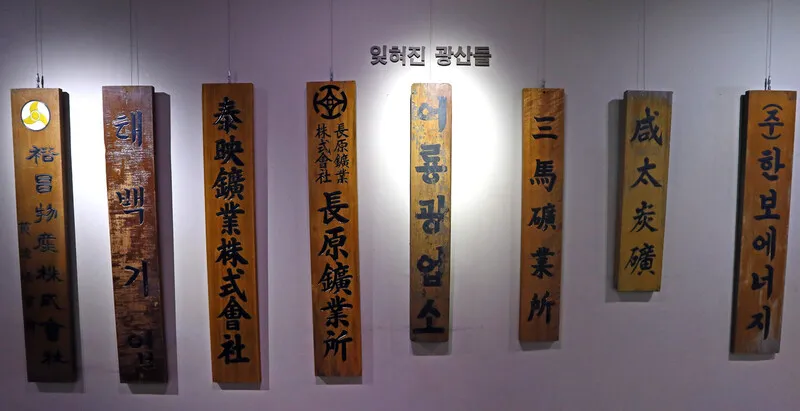 잊혀진 광산들
裕昌物産株式會社
태백기업
泰映鑛業株式會社
長原鑛業
株式會社
長原鑛業所
어룡광업소
三馬礦業所
咸太炭礦
(주)한보에너지